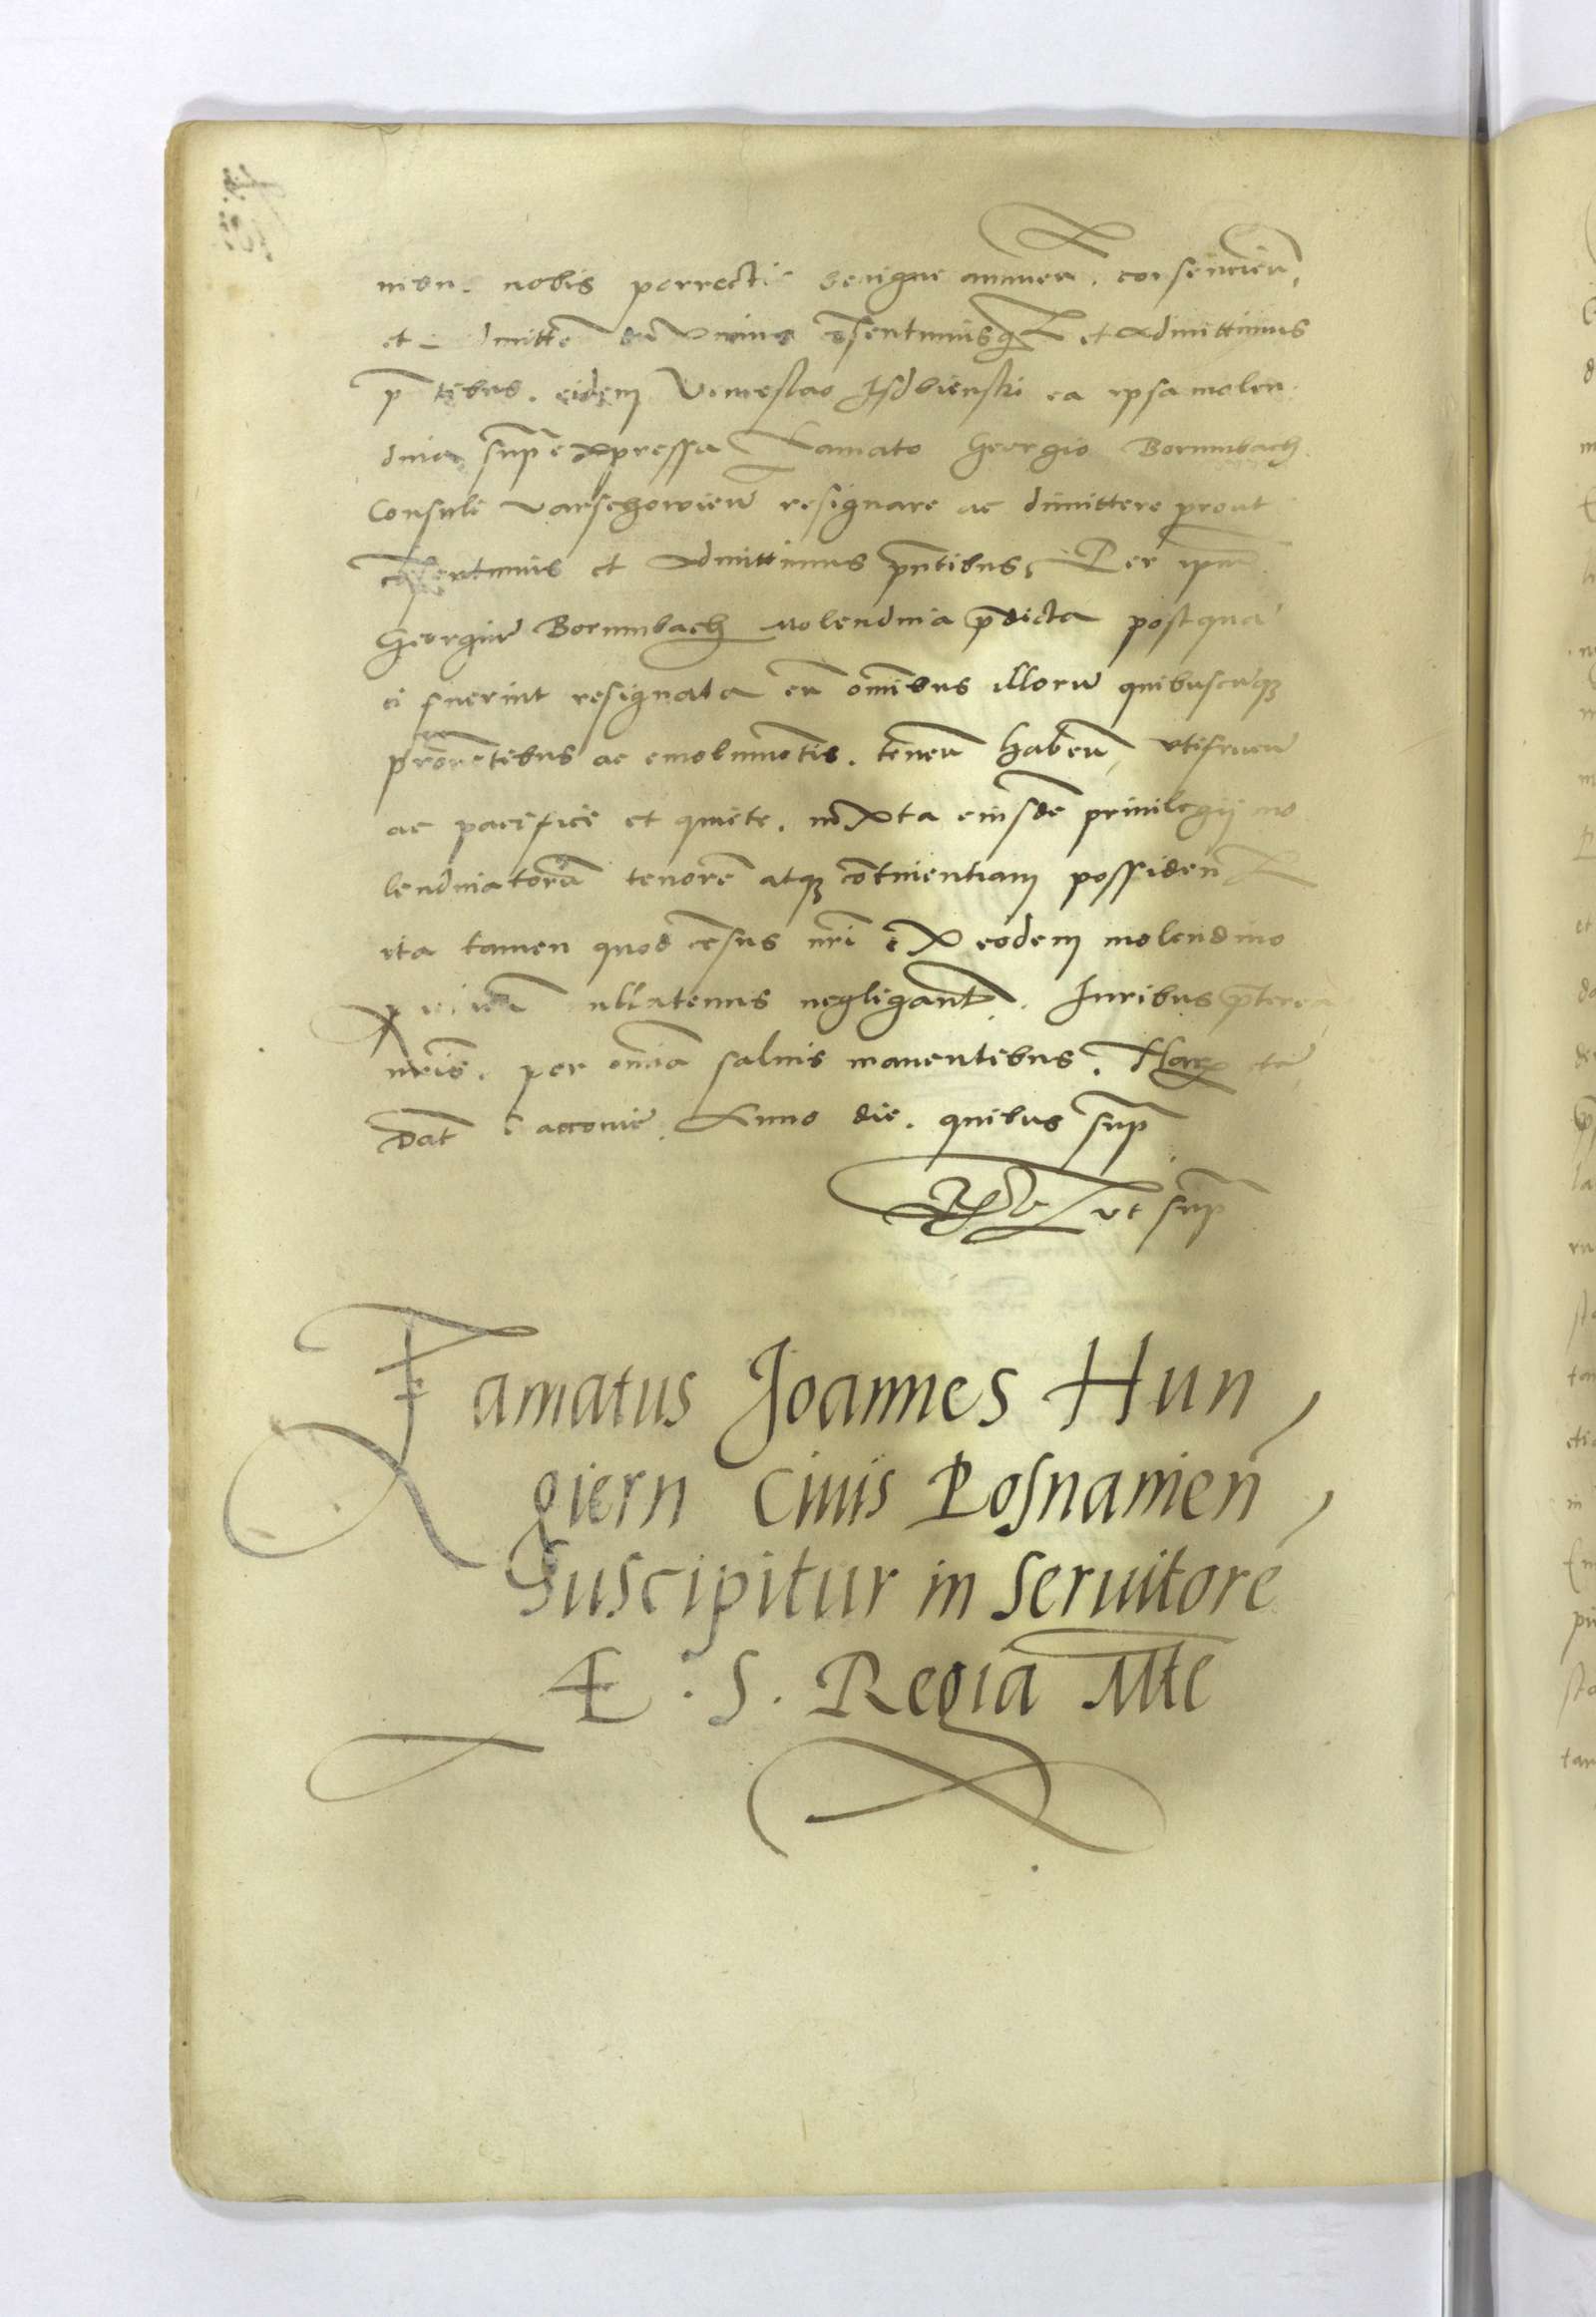 nobis porrectis benigne annuen. consencien,
et admitten duximus cōsentimusq et admittimus
p tibus. eidem Venceslao Isdbienski ea ipsa molen
dina sup expressa Famato Georgio Bornnbach
Consuli Varschowien resignare ac dimittere prout
cōsentimus et admittimus pn̄tibus, Per ipm
Georgiu Bornnbach Molendina p̄dicta postqua
ei fuerint resignata cu om̄ibus illoru quibuscūq
prouētibus ac emolumētis. tenen haben, vtifruen
ac pacifice et quiete. iuxta eiusdē priuilegij mo
lendinatorū tenorē atq cōtinentiam possiden
ita tamen quod cēsus nr̄i ex eodem molendino
ullatenus negligant. Iuribus p̄terea
nr̄is. per om̄ia saluis manentibus. Harū te
Dat accouie. Anno die. quibus sup
ut sup
Famatus Joannes Hun,
giern Ciuis Posnanien,
Suscipitur in Seruitorē
Æ. S. Regia Mte